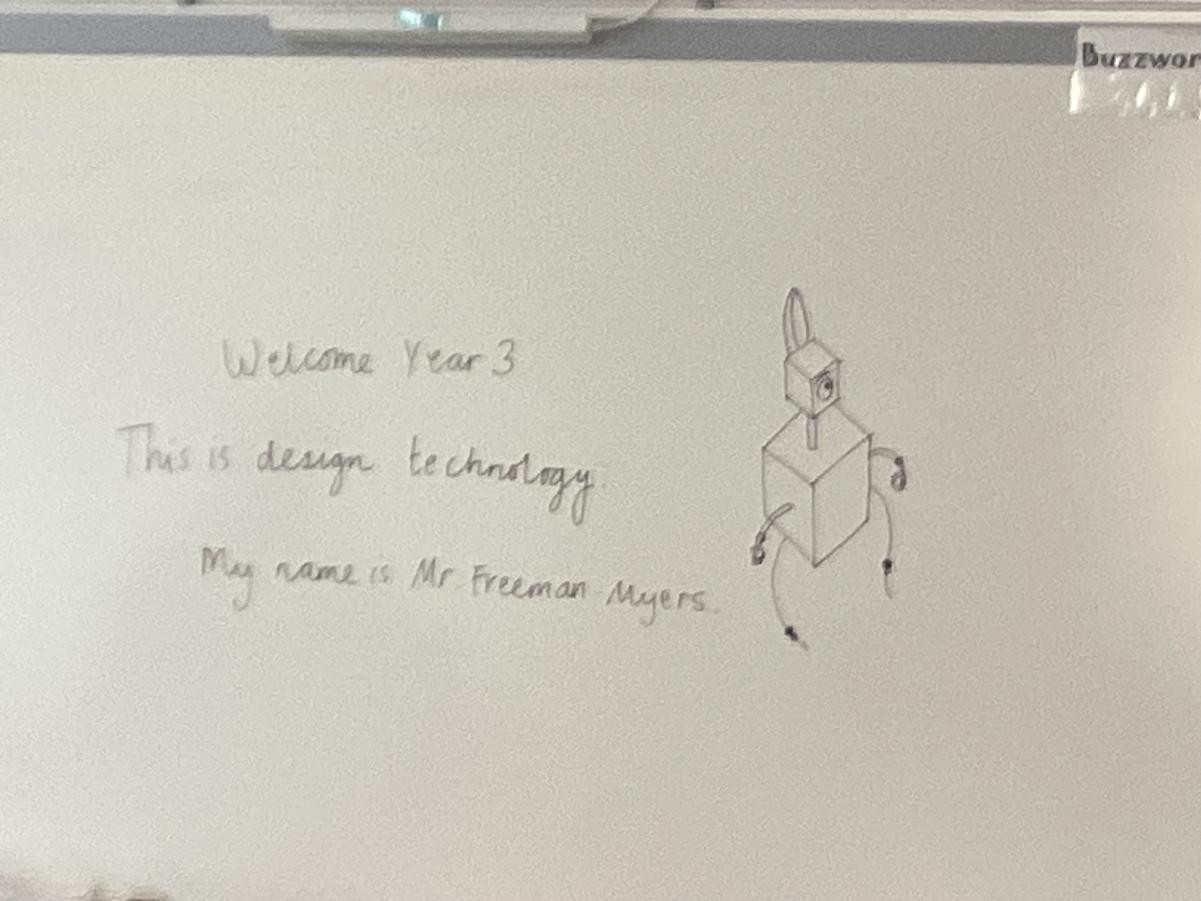 Buzzwor
Welcome Year 3
This is design technology.
My name is Mr Freeman Myers.